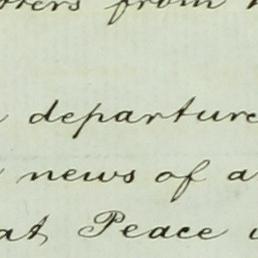 from
departure
news of a
at Peace